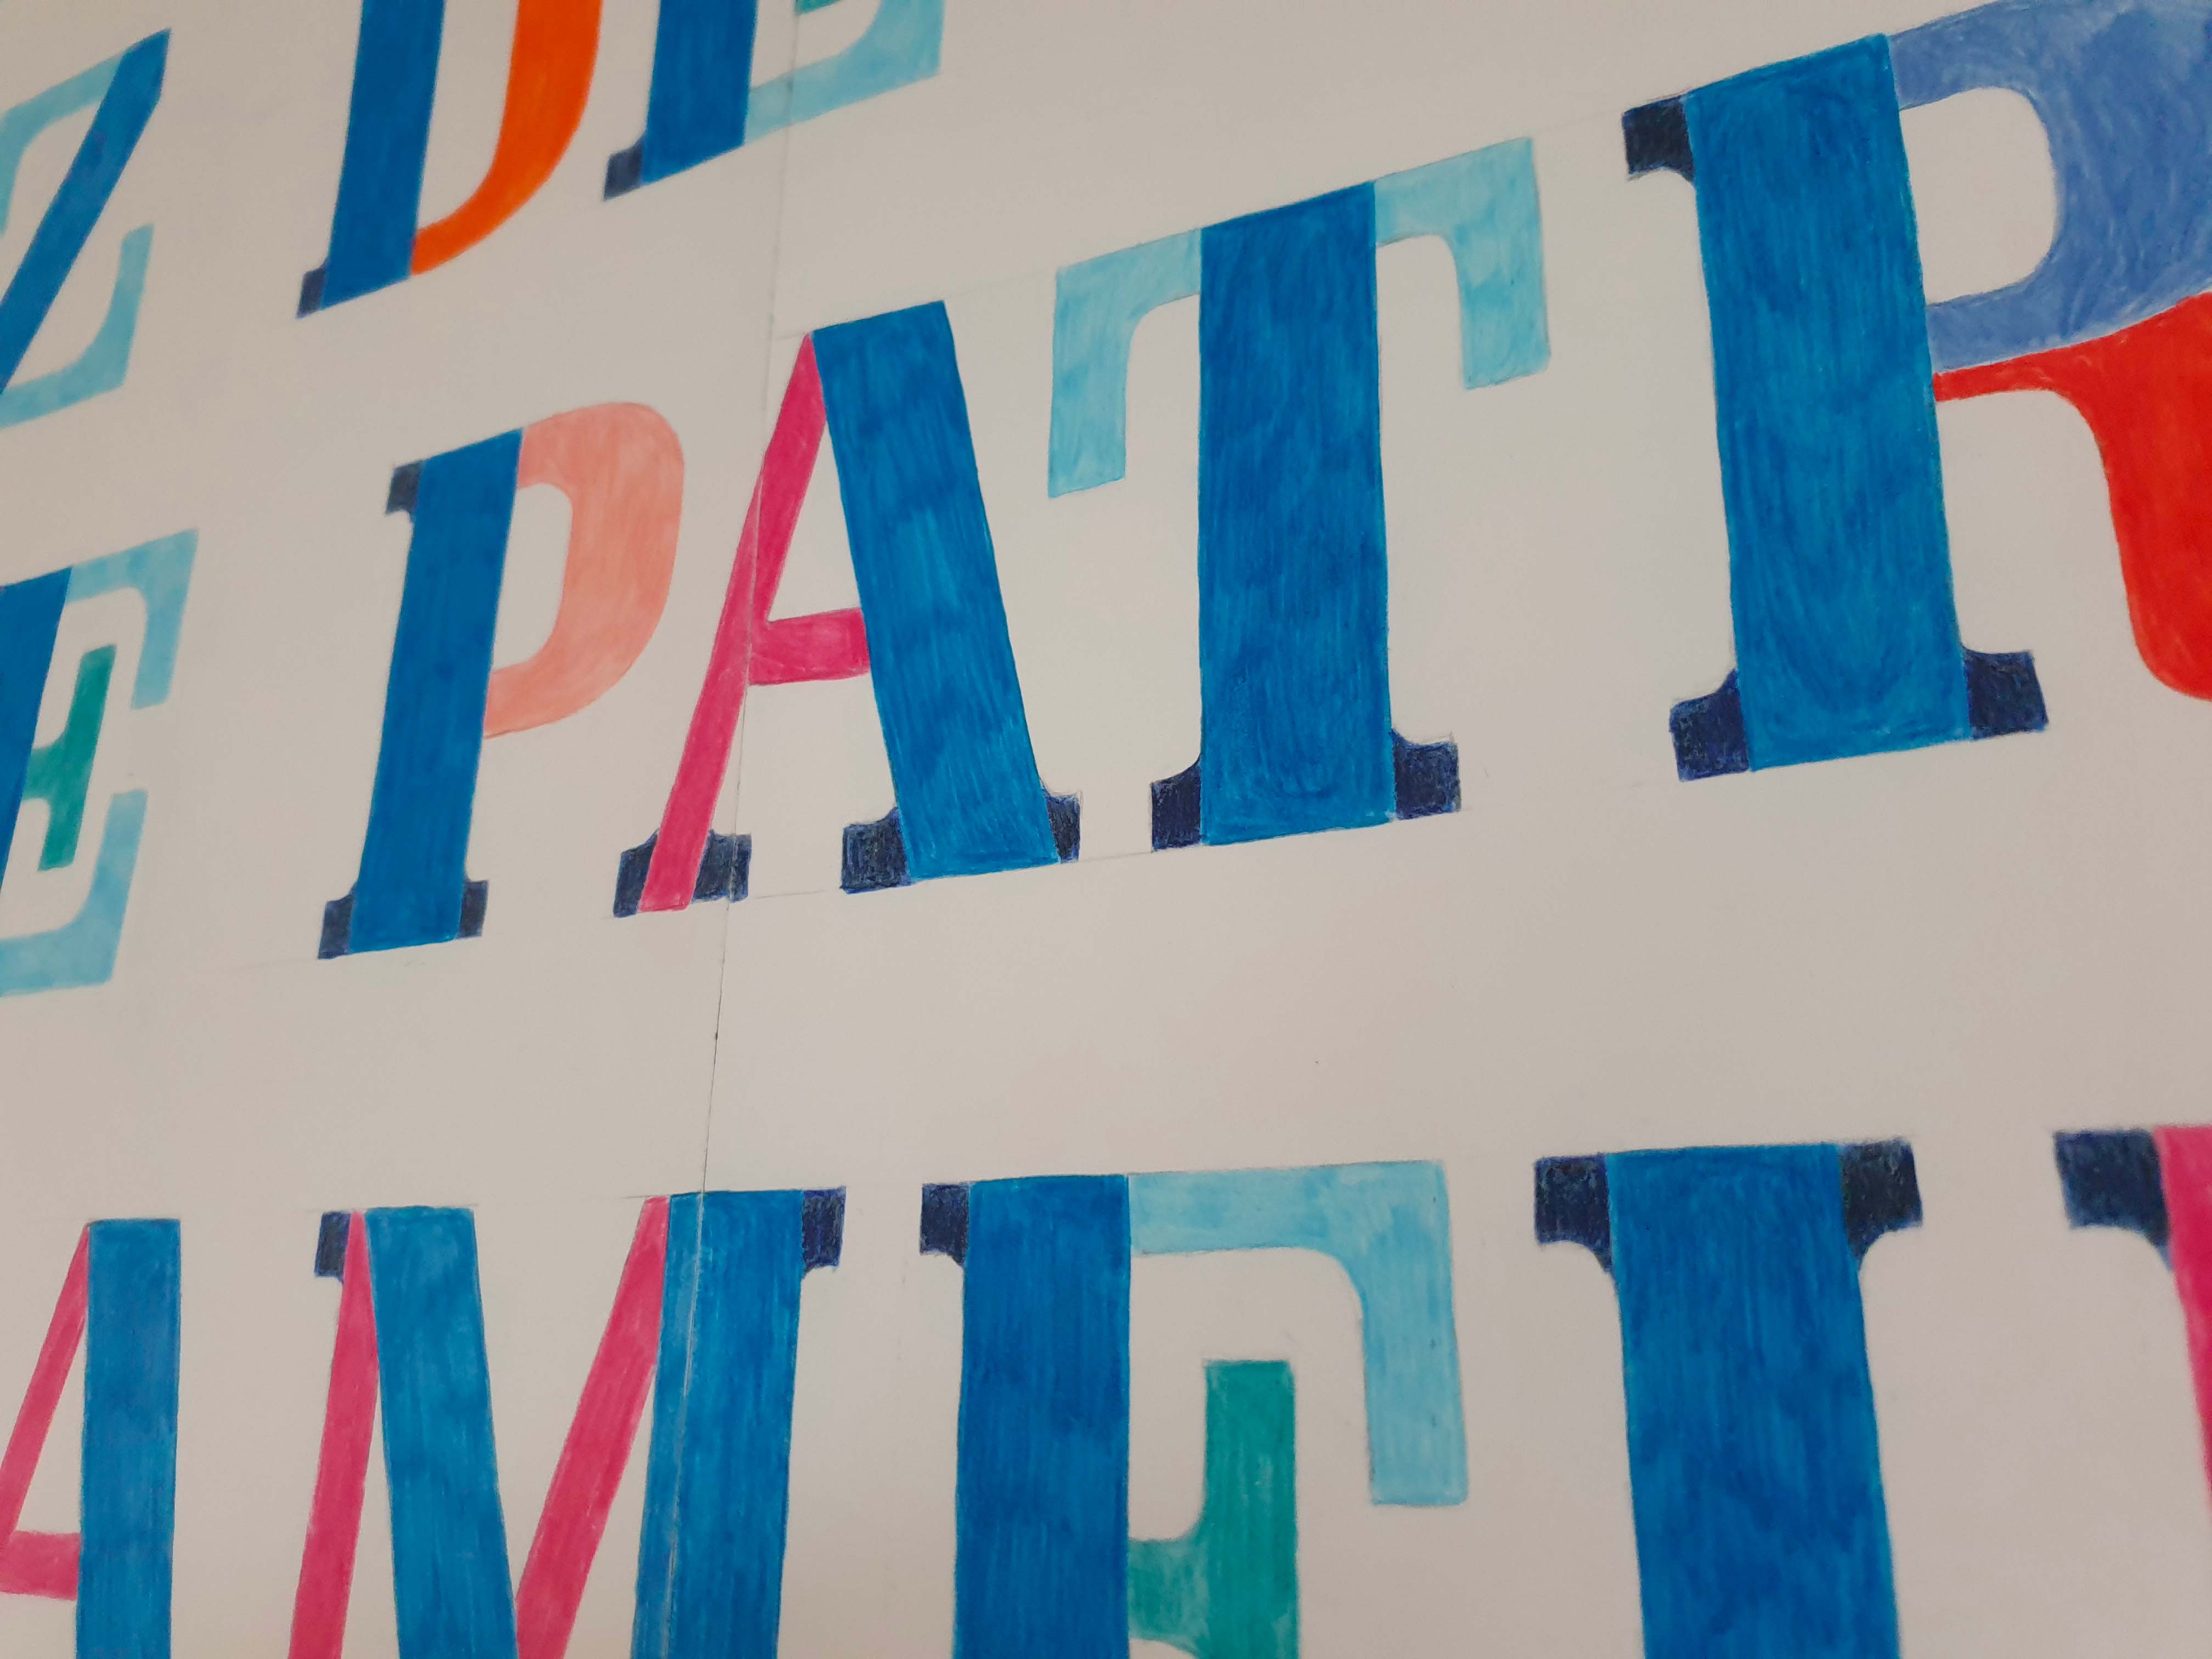 Z DE
E PATR
AMEI